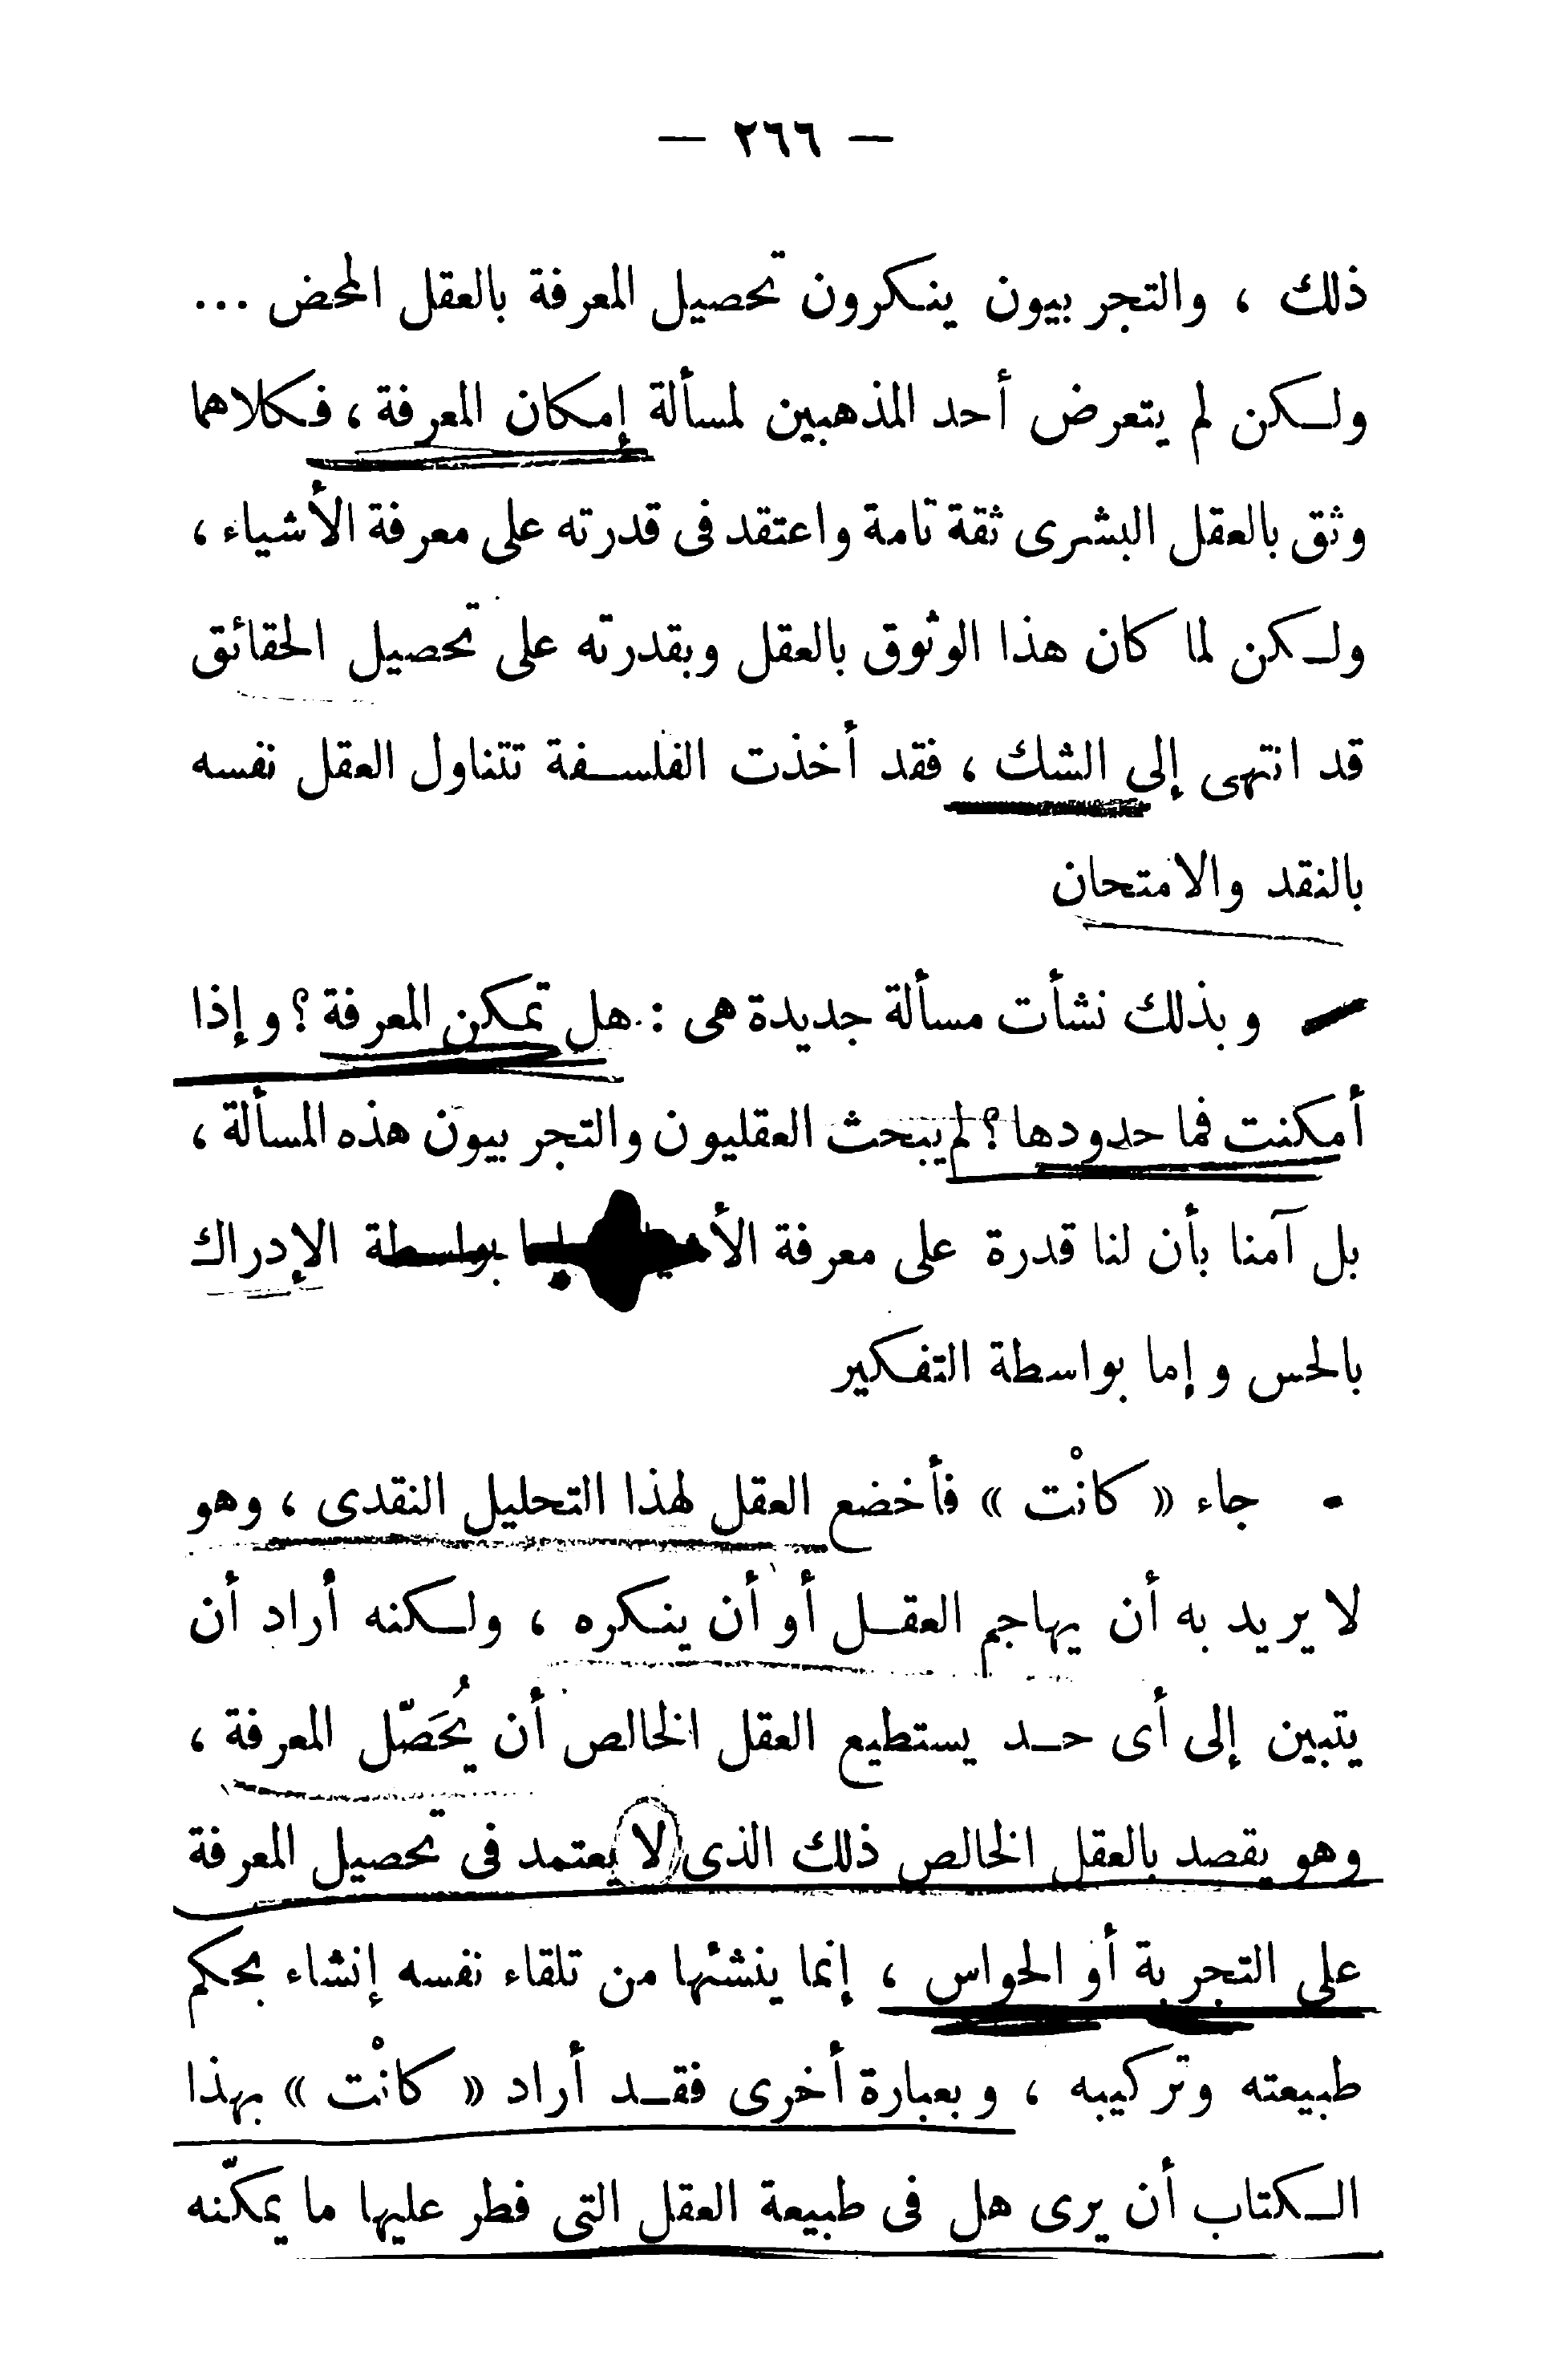 — ٢٦٦ —
ذلك ، والتجريبيون ينكرون تحصيل المعرفة بالعقل المحض ...
ولكن لم يتعرض أحد المذهبين لمسألة إمكان المعرفة ، فكلاهما
وثق بالعقل البشرى ثقة تامة واعتقد فى قدرته على معرفة الأشياء ،
ولكن لما كان هذا الوثوق بالعقل وبقدرته على تحصيل الحقائق
قد انتهى إلى الشك ، فقد أخذت الفلسفة تتناول العقل نفسه
بالنقد والامتحان
وبذلك نشأت مسألة جديدة هى : هل تمكن المعرفة ؟ وإذا
أمكنت فما حدودها ؟ لم يبحث العقليون والتجريبيون هذه المسألة ،
بل آمنا بأن لنا قدرة على معرفة بواسطة الإدراك
بالحس وإما بواسطة التفكير
جاء « كانْت » فأخضع العقل لهذا التحليل النقدى ، وهو
لا يريد به أن يهاجم العقل أو أن ينكره ، ولكنه أراد أن
يتبين إلى أى حد يستطيع العقل الخالص أن يُحَصّل المعرفة ،
وهو يقصد بالعقل الخالص ذلك الذى لا يعتمد فى تحصيل المعرفة
على التجربة أو الحواس ، إنما ينشئها من تلقاء نفسه إنشاء بحكم
طبيعته وتركيبه ، وبعبارة أخرى فقد أراد « كانْت » بهذا
الكتاب أن يرى هل فى طبيعة العقل التى فطر عليها ما يمكّنه